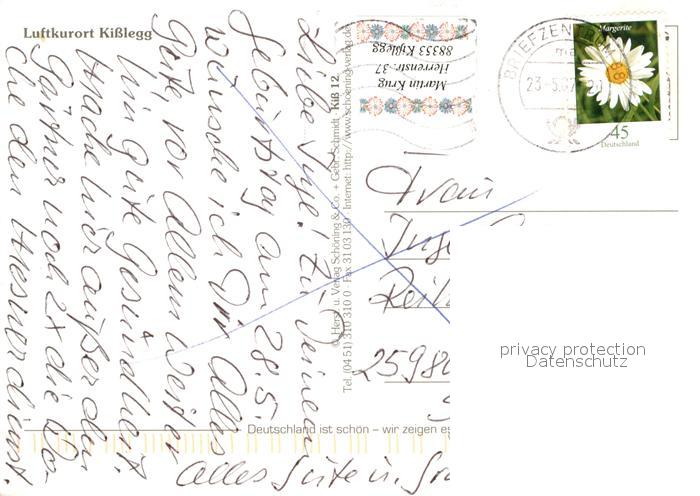 Luftkurort Kißlegg
Liebe Inge! Zu Deinem
Geburtstag am 28.5.
wünsche ich Dir Alles
Gute vor Allem weiter
hin gute Gesundheit.
Mache hier außer dem
Gärtner noch 2x die Wo-
che den Mesnerdienst.
Alles Gute u.
© Herst. u. Verlag Schöning & Co. + Gebr. Schmidt · Kiß 12
Tel. (04 51) 310 310 0 · Fax 31 03 130 · Internet: http://www.schoening-verlag.de
Deutschland ist schön – wir zeigen es
Martin Krug
Herrenstr. 37
88353 Kißlegg
BRIEFZENTRUM
23-5.07
Margerite
45
Deutschland
Frau
Inge
25980
privacy protection
Datenschutz